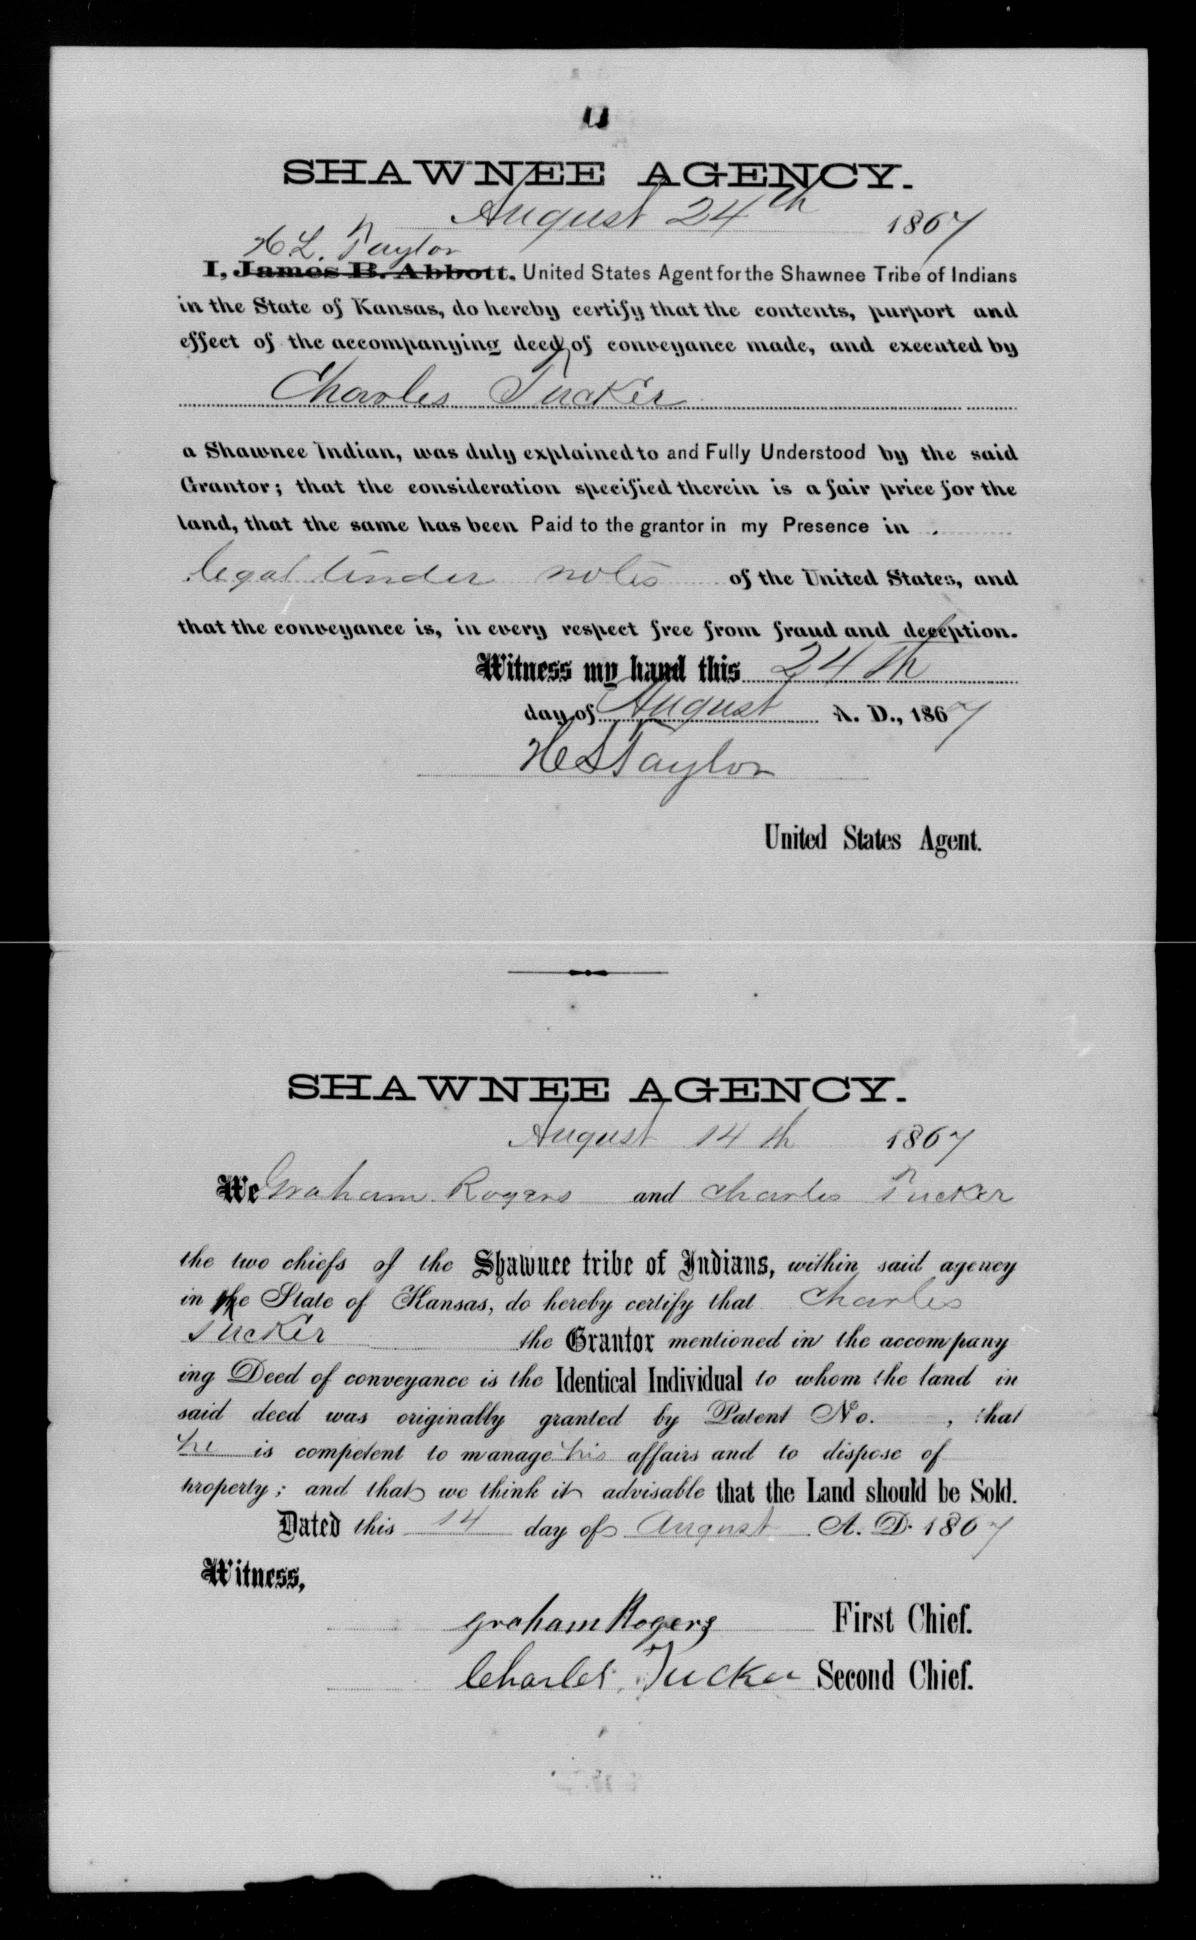 SHAWNEE AGENCY.
August 24th 1867
H L. Taylor
I, James B. Abbott, United States Agent for the Shawnee Tribe of Indians
in the State of Kansas, do hereby certify that the contents, purport and
effect of the accompanying deed of conveyance made, and executed by
Charles Tucker
a Shawnee Indian, was duly explained to and Fully Understood by the said
Grantor; that the consideration specified therein is a fair price for the
land, that the same has been Paid to the grantor in my Presence in
legal tinder notes of the United States, and
that the conveyance is, in every respect free from fraud and deception.
Witness my hand this 24th
day of August A. D., 1867
H L Taylor
United States Agent.
SHAWNEE AGENCY.
August 14th 1867
We Graham Rogers and Charles Tucker
the two chiefs of the Shawnee tribe of Indians, within said agency
in the State of Kansas, do hereby certify that Charles
Tucker the Grantor mentioned in the accompany
ing Deed of conveyance is the Identical Individual to whom the land in
said deed was originally granted by Patent No. , that
he is competent to manage his affairs and to dispose of
property; and that we think it advisable that the Land should be Sold.
Dated this 14 day of August A. D. 1867
Witness,
Graham Rogers First Chief.
Charles Tucker Second Chief.